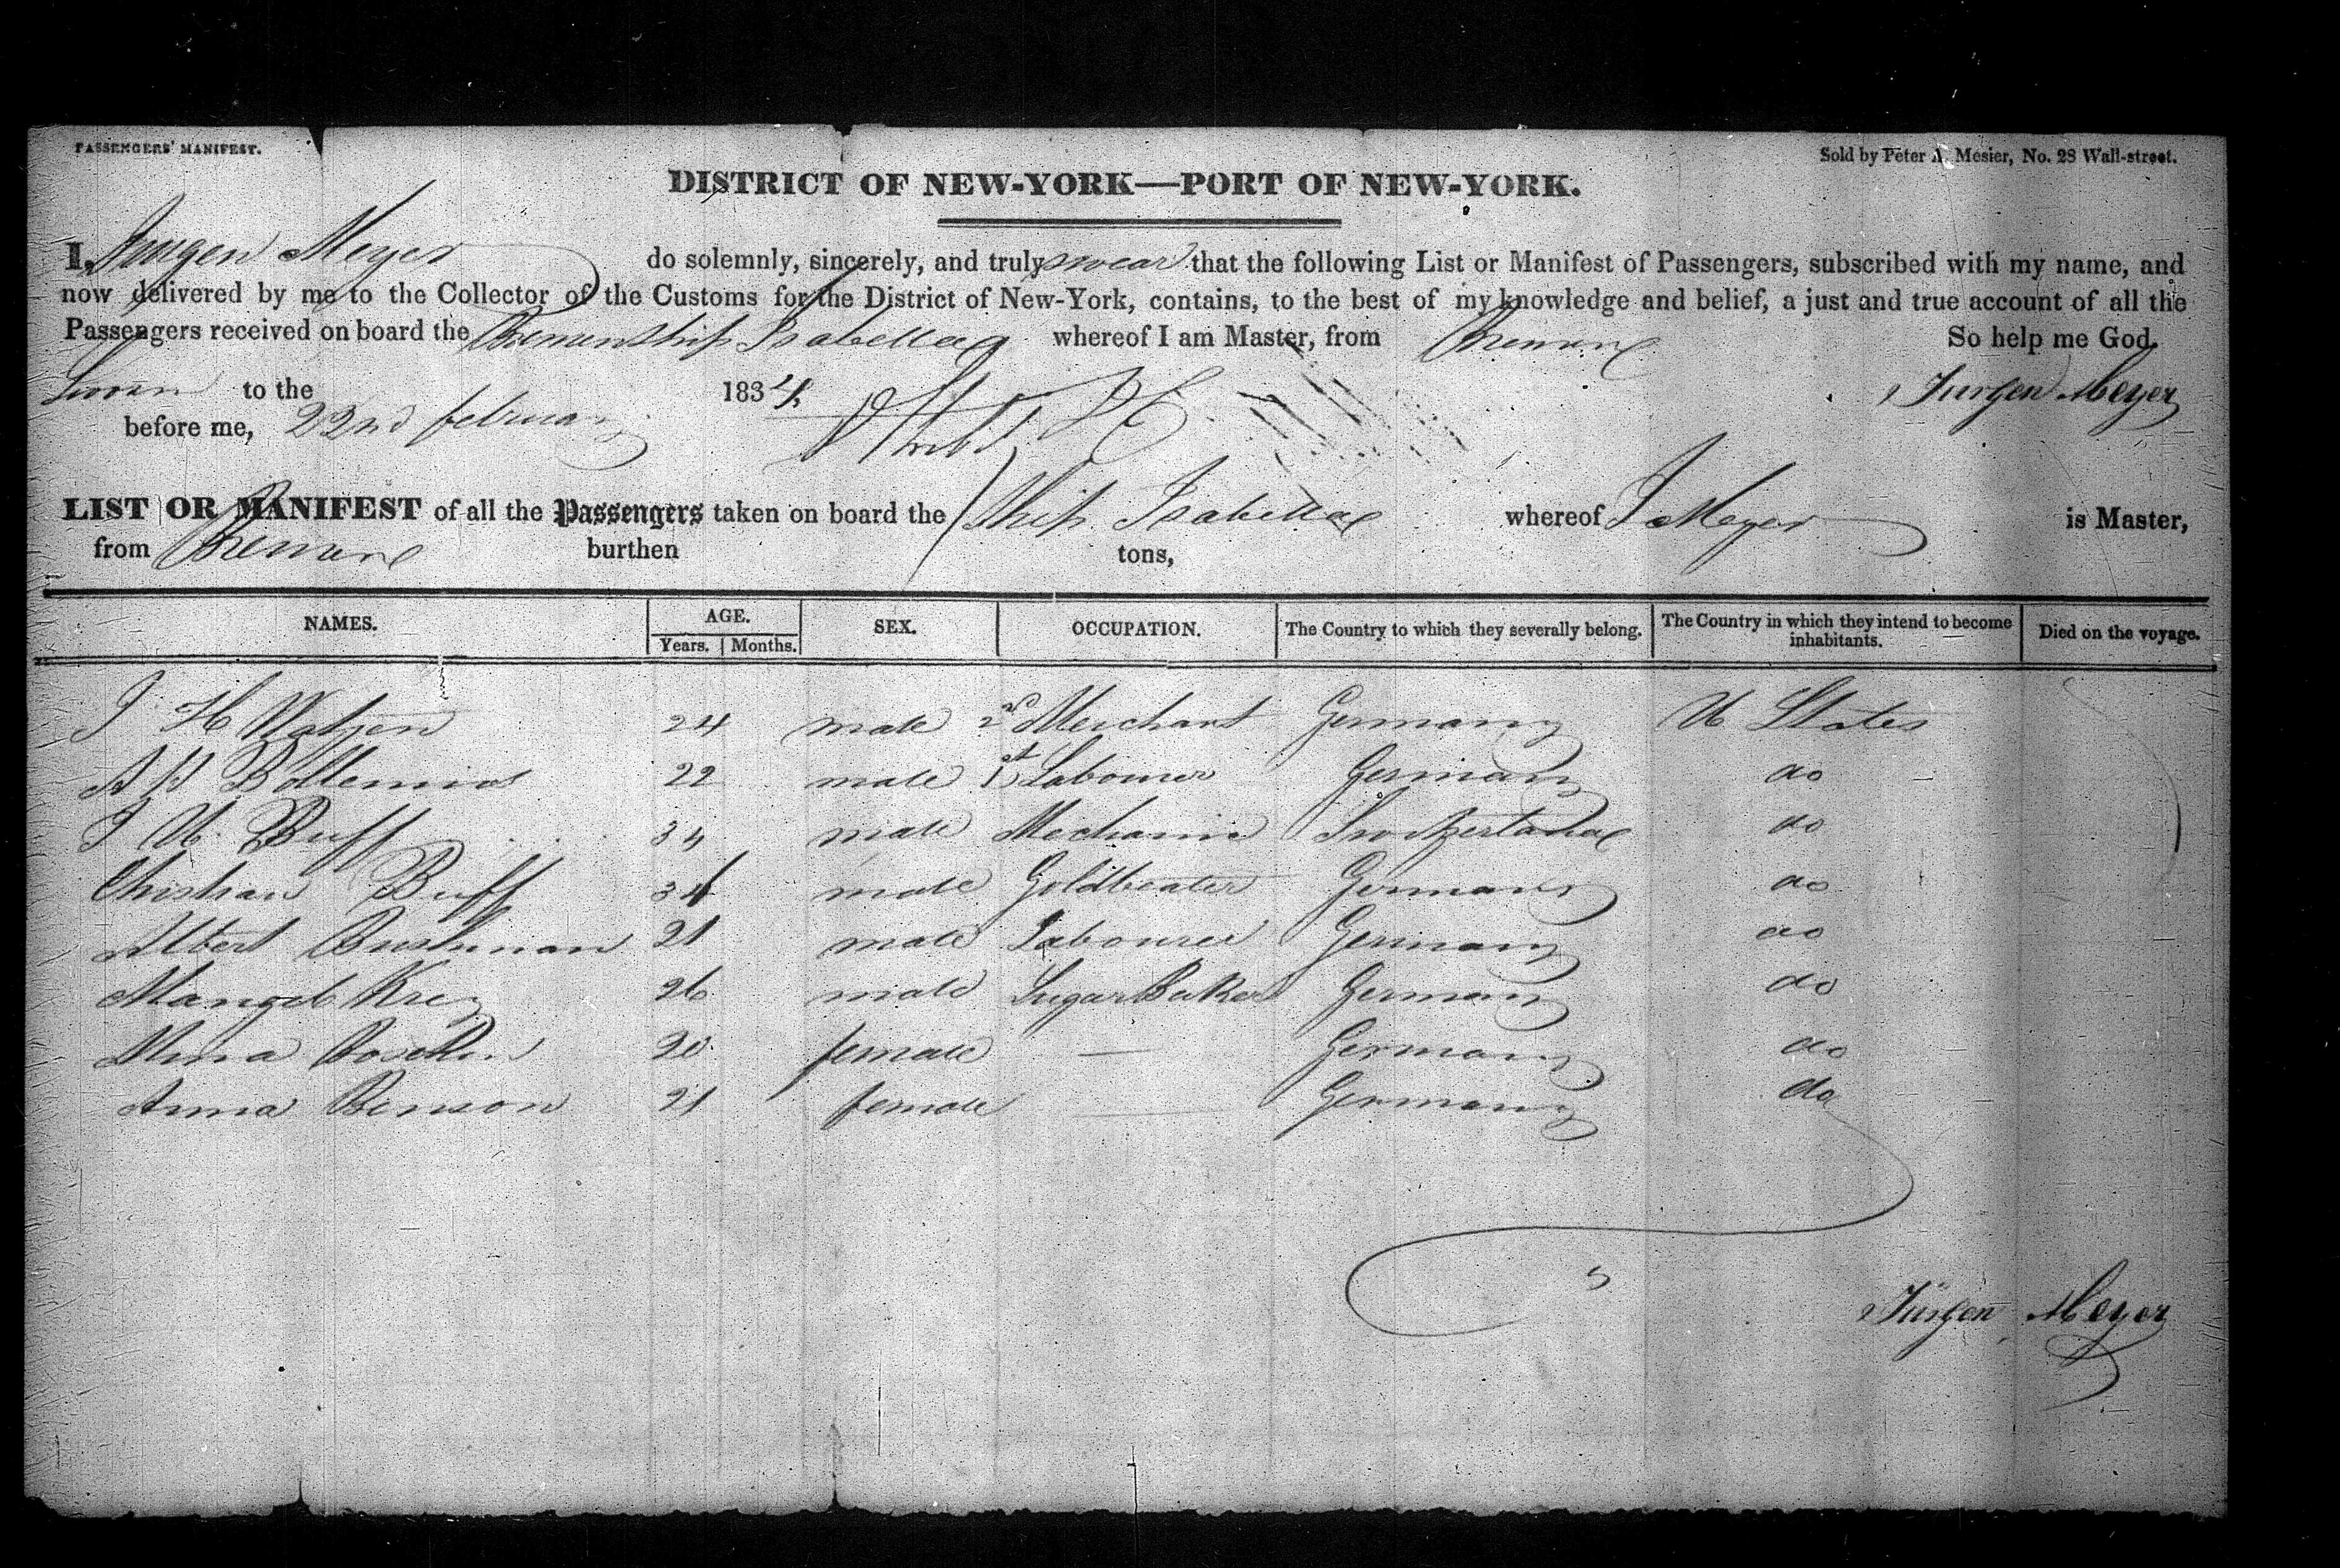 PASSENGERS' MANIFEST.
Sold by Peter A. Mesier, No. 28 Wall-street.
DISTRICT OF NEW-YORK—PORT OF NEW-YORK.
I, Jurgen Meyer do solemnly, sincerely, and truly swear that the following List or Manifest of Passengers, subscribed with my name, and
now delivered by me to the Collector of the Customs for the District of New-York, contains, to the best of my knowledge and belief, a just and true account of all the
Passengers received on board the Bremen Ship Isabella whereof I am Master, from Bremen So help me God.
Sworn to the 1834 Jurgen Meyer
before me, 22nd february
LIST OR MANIFEST of all the Passengers taken on board the Ship Isabella whereof J Meyer is Master,
from Bremen burthen tons,
NAMES. AGE. SEX. OCCUPATION. The Country to which they severally belong. The Country in which they intend to become inhabitants. Died on the voyage.
Years. Months.
J H Watjen 24 male Merchant Germany U States
22 male Labourer Germany do
J U Buff 34 male Mechanic Switzerland do
Christian Buff 34 male Goldbeater Germany do
Albert Bushman 21 male Labourer Germany do
26 male Sugar Baker Germany do
20 female — Germany do
Anna Benson 21 female — Germany do
Jürgen Meyer